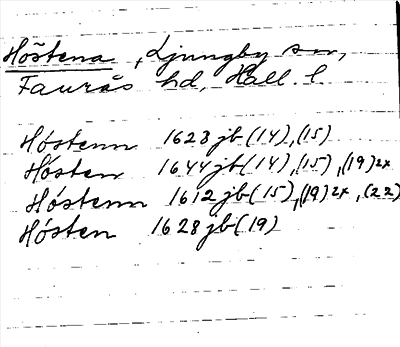 Höstena, Ljungby sn,
Faurås hd, Hall. l
Hóstenn 1623 jb (14), (15)
Hósten 1644 jb (14), (15), (19) 2x
Hóstenn 1612 jb (15), (19) 2x, (22)
Hósten 1628 jb (19)